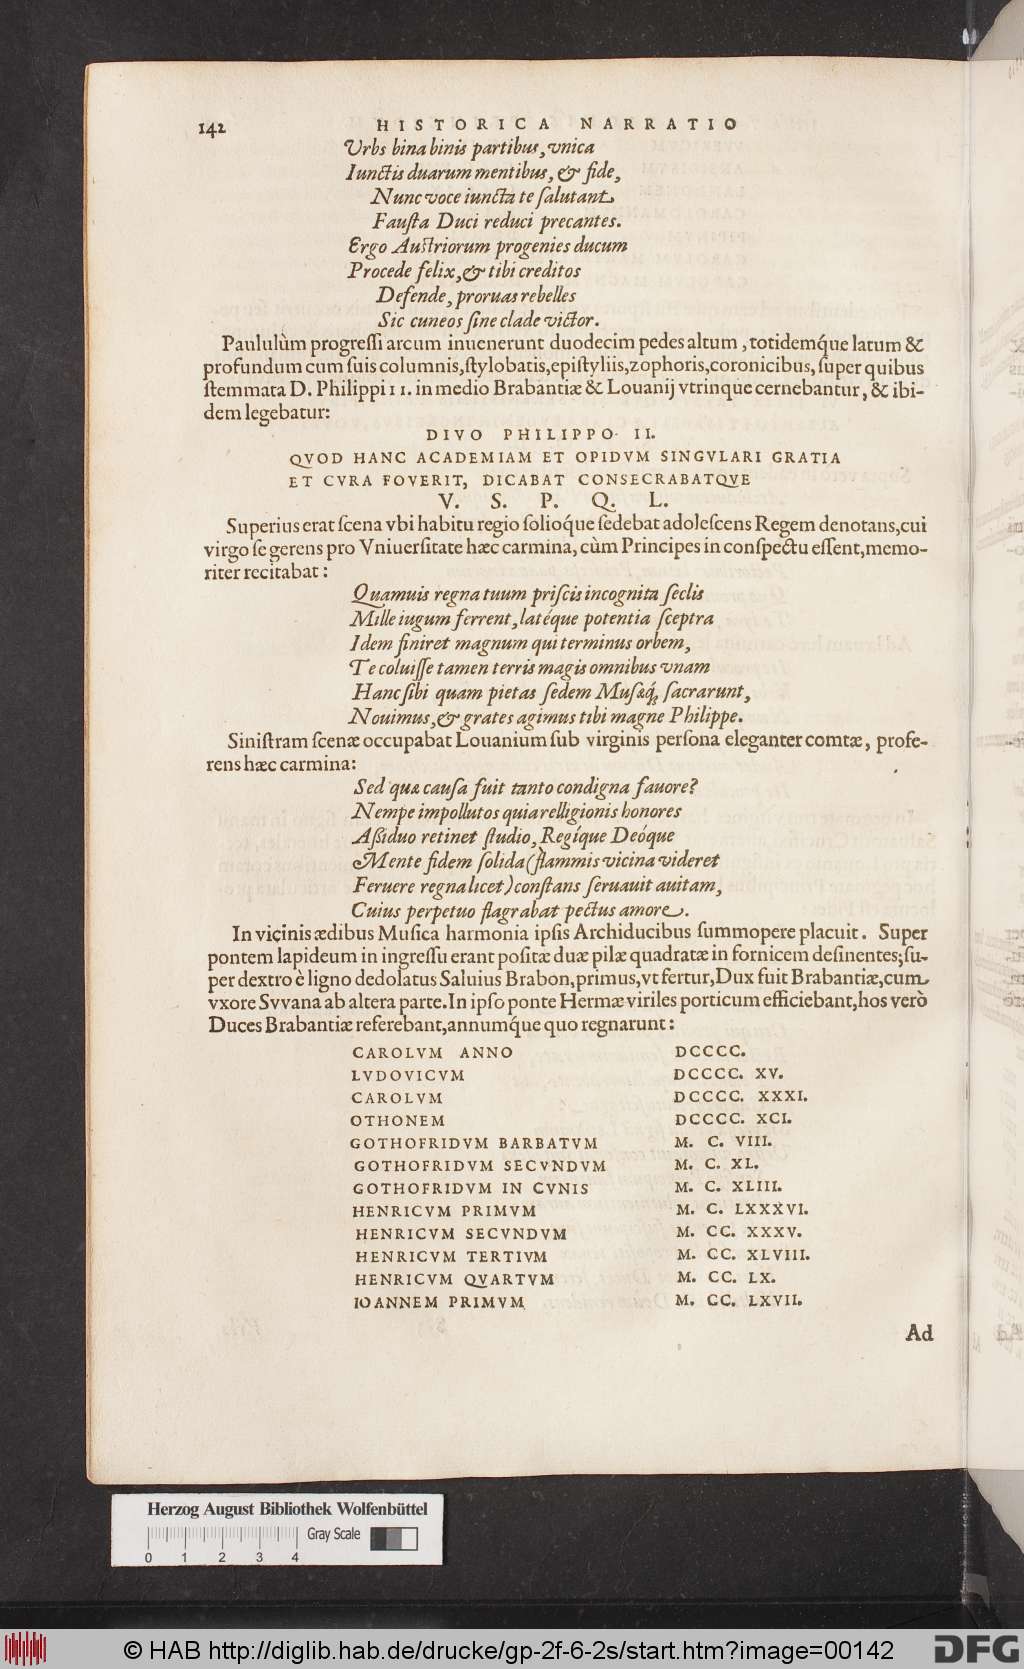 142 HISTORICA NARRATIO
Vrbs bina binis partibus, vnica
Iunctis duarum mentibus, & fide,
Nunc voce iuncta te salutant
Fausta Duci reduci precantes.
Ergo Austriorum progenies ducum
Procede felix, & tibi creditos
Defende, proruas rebelles
Sic cuneos sine clade victor.
Paululùm progressi arcum inuenerunt duodecim pedes altum, totidemq́ue latum &
profundum cum suis columnis, stylobatis, epistyliis, zophoris, coronicibus, super quibus
stemmata D. Philippi II. in medio Brabantiæ & Louanij vtrinque cernebantur, & ibi-
dem legebatur:
DIVO PHILIPPO II.
QVOD HANC ACADEMIAM ET OPIDVM SINGVLARI GRATIA
ET CVRA FOVERIT, DICABAT CONSECRABATQVE
V. S. P. Q. L.
Superius erat scena vbi habitu regio solioq́ue sedebat adolescens Regem denotans, cui
virgo se gerens pro Vniuersitate hæc carmina, cùm Principes in conspectu essent, memo-
riter recitabat:
Quamuis regna tuum priscis incognita seclis
Mille iugum ferrent, latéque potentia sceptra
Idem finiret magnum qui terminus orbem,
Te coluisse tamen terris magis omnibus vnam
Hanc sibi quam pietas sedem Musæq́; sacrarunt,
Nouimus, & grates agimus tibi magne Philippe.
Sinistram scenæ occupabat Louanium sub virginis persona eleganter comtæ, profe-
rens hæc carmina:
Sed quæ causa fuit tanto condigna fauore?
Nempe impollutos quia relligionis honores
Assiduo retinet studio, Regíque Deóque
Mente fidem solida (flammis vicina videret
Feruere regna licet) constans seruauit auitam,
Cuius perpetuo flagrabat pectus amore.
In vicinis ædibus Musica harmonia ipsis Archiducibus summopere placuit. Super
pontem lapideum in ingressu erant positæ duæ pilæ quadratæ in fornicem desinentes; su-
per dextro è ligno dedolatus Saluius Brabon, primus, vt fertur, Dux fuit Brabantiæ, cum
vxore Svvana ab altera parte. In ipso ponte Hermæ viriles porticum efficiebant, hos verò
Duces Brabantiæ referebant, annumq́ue quo regnarunt:
CAROLVM ANNO DCCCC.
LVDOVICVM DCCCC. XV.
CAROLVM DCCCC. XXXI.
OTHONEM DCCCC. XCI.
GOTHOFRIDVM BARBATVM M. C. VIII.
GOTHOFRIDVM SECVNDVM M. C. XL.
GOTHOFRIDVM IN CVNIS M. C. XLIII.
HENRICVM PRIMVM M. C. LXXXVI.
HENRICVM SECVNDVM M. CC. XXXV.
HENRICVM TERTIVM M. CC. XLVIII.
HENRICVM QVARTVM M. CC. LX.
IOANNEM PRIMVM M. CC. LXVII.
Ad
Herzog August Bibliothek Wolfenbüttel
Gray Scale
0 1 2 3 4
© HAB http://diglib.hab.de/drucke/gp-2f-6-2s/start.htm?image=00142
DFG